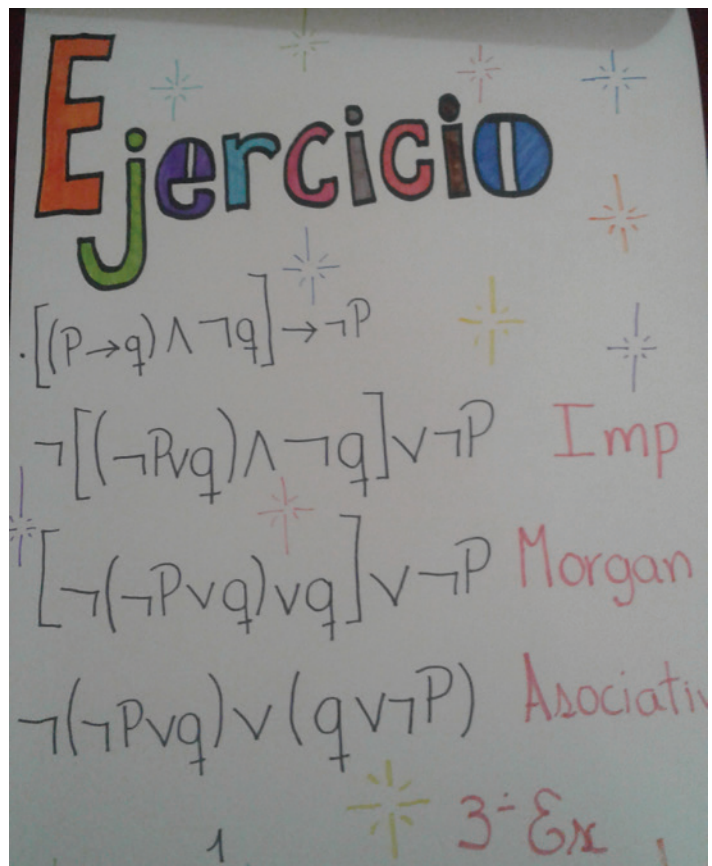 Ejercicio
.[(P→q)∧¬q]→¬P
¬[(¬P∨q)∧¬q]∨¬P Imp
[¬(¬P∨q)∨q]∨¬P Morgan
¬(¬P∨q)∨(q∨¬P) Asociativ
1 3÷Ex